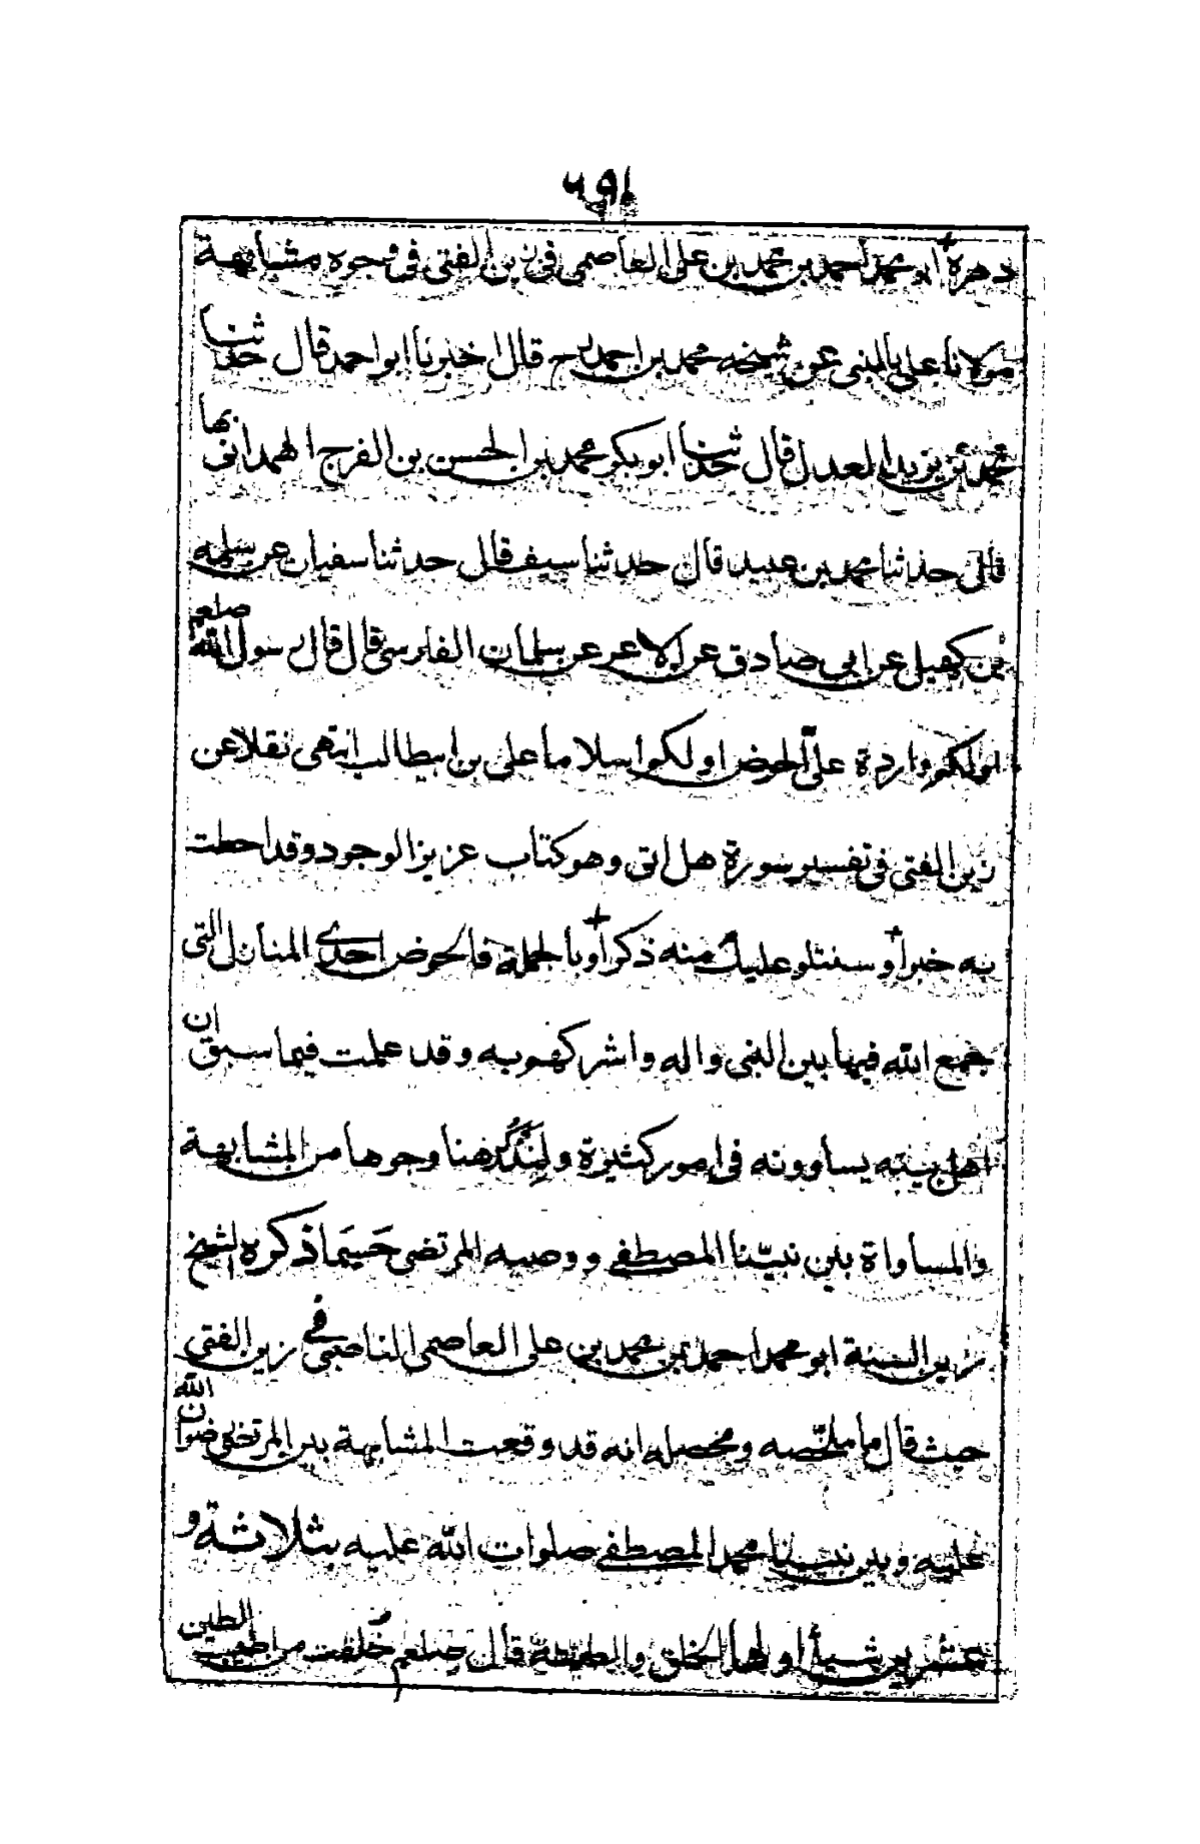 ٥٩١
دهرة ابو محمد احمد بن محمد بن علي العاصمي في زين الفتى في وجوه مشابهة
مولانا علي بالنبي عن شيخه محمد بن احمد رح قال اخبرنا ابو احمد قال حدثنا
محمد بن يزيد العدل قال حدثنا ابو بكر محمد بن الحسن بن الفرج الهمداني بها
قال حدثنا محمد بن عبيد قال حدثنا سيف قال حدثنا سفيان عن سلمه
بن كهيل عن ابي صادق عن الاعر عن سلمان الفارسي قال قال رسول الله صلعم
اولكم واردة علي الحوض اولكم اسلاما علي بن ابيطالب انتهى نقلا عن
زين الفتى في تفسير سورة هل اتى وهو كتاب عزيز الوجود وقد احطت
به خبرا وسنتلو عليك منه ذكرا وبالجملة فالحوض احدى المنازل التي
جمع الله فيها بين النبي واله واشركهم به وقد علمت فيما سبق ان
اهل بيته يساوونه في امور كثيرة ولنذكر هنا وجوها من المشابهة
والمساواة بين نبيّنا المصطفى ووصيه المرتضى حسبما ذكره الشيخ
زين السنة ابو محمد احمد بن محمد بن علي العاصمي الناصبي في زين الفتى
حيث قال ما ملخّصه ومحصله انه قد وقعت المشابهة بين المرتضى رضوان الله
عليه وبين نبينا محمد المصطفى صلوات الله عليه بثلاثة و
عشرين شيأ اولها الخلق والطينة قال صلعم خُلقت من اطيب الطين